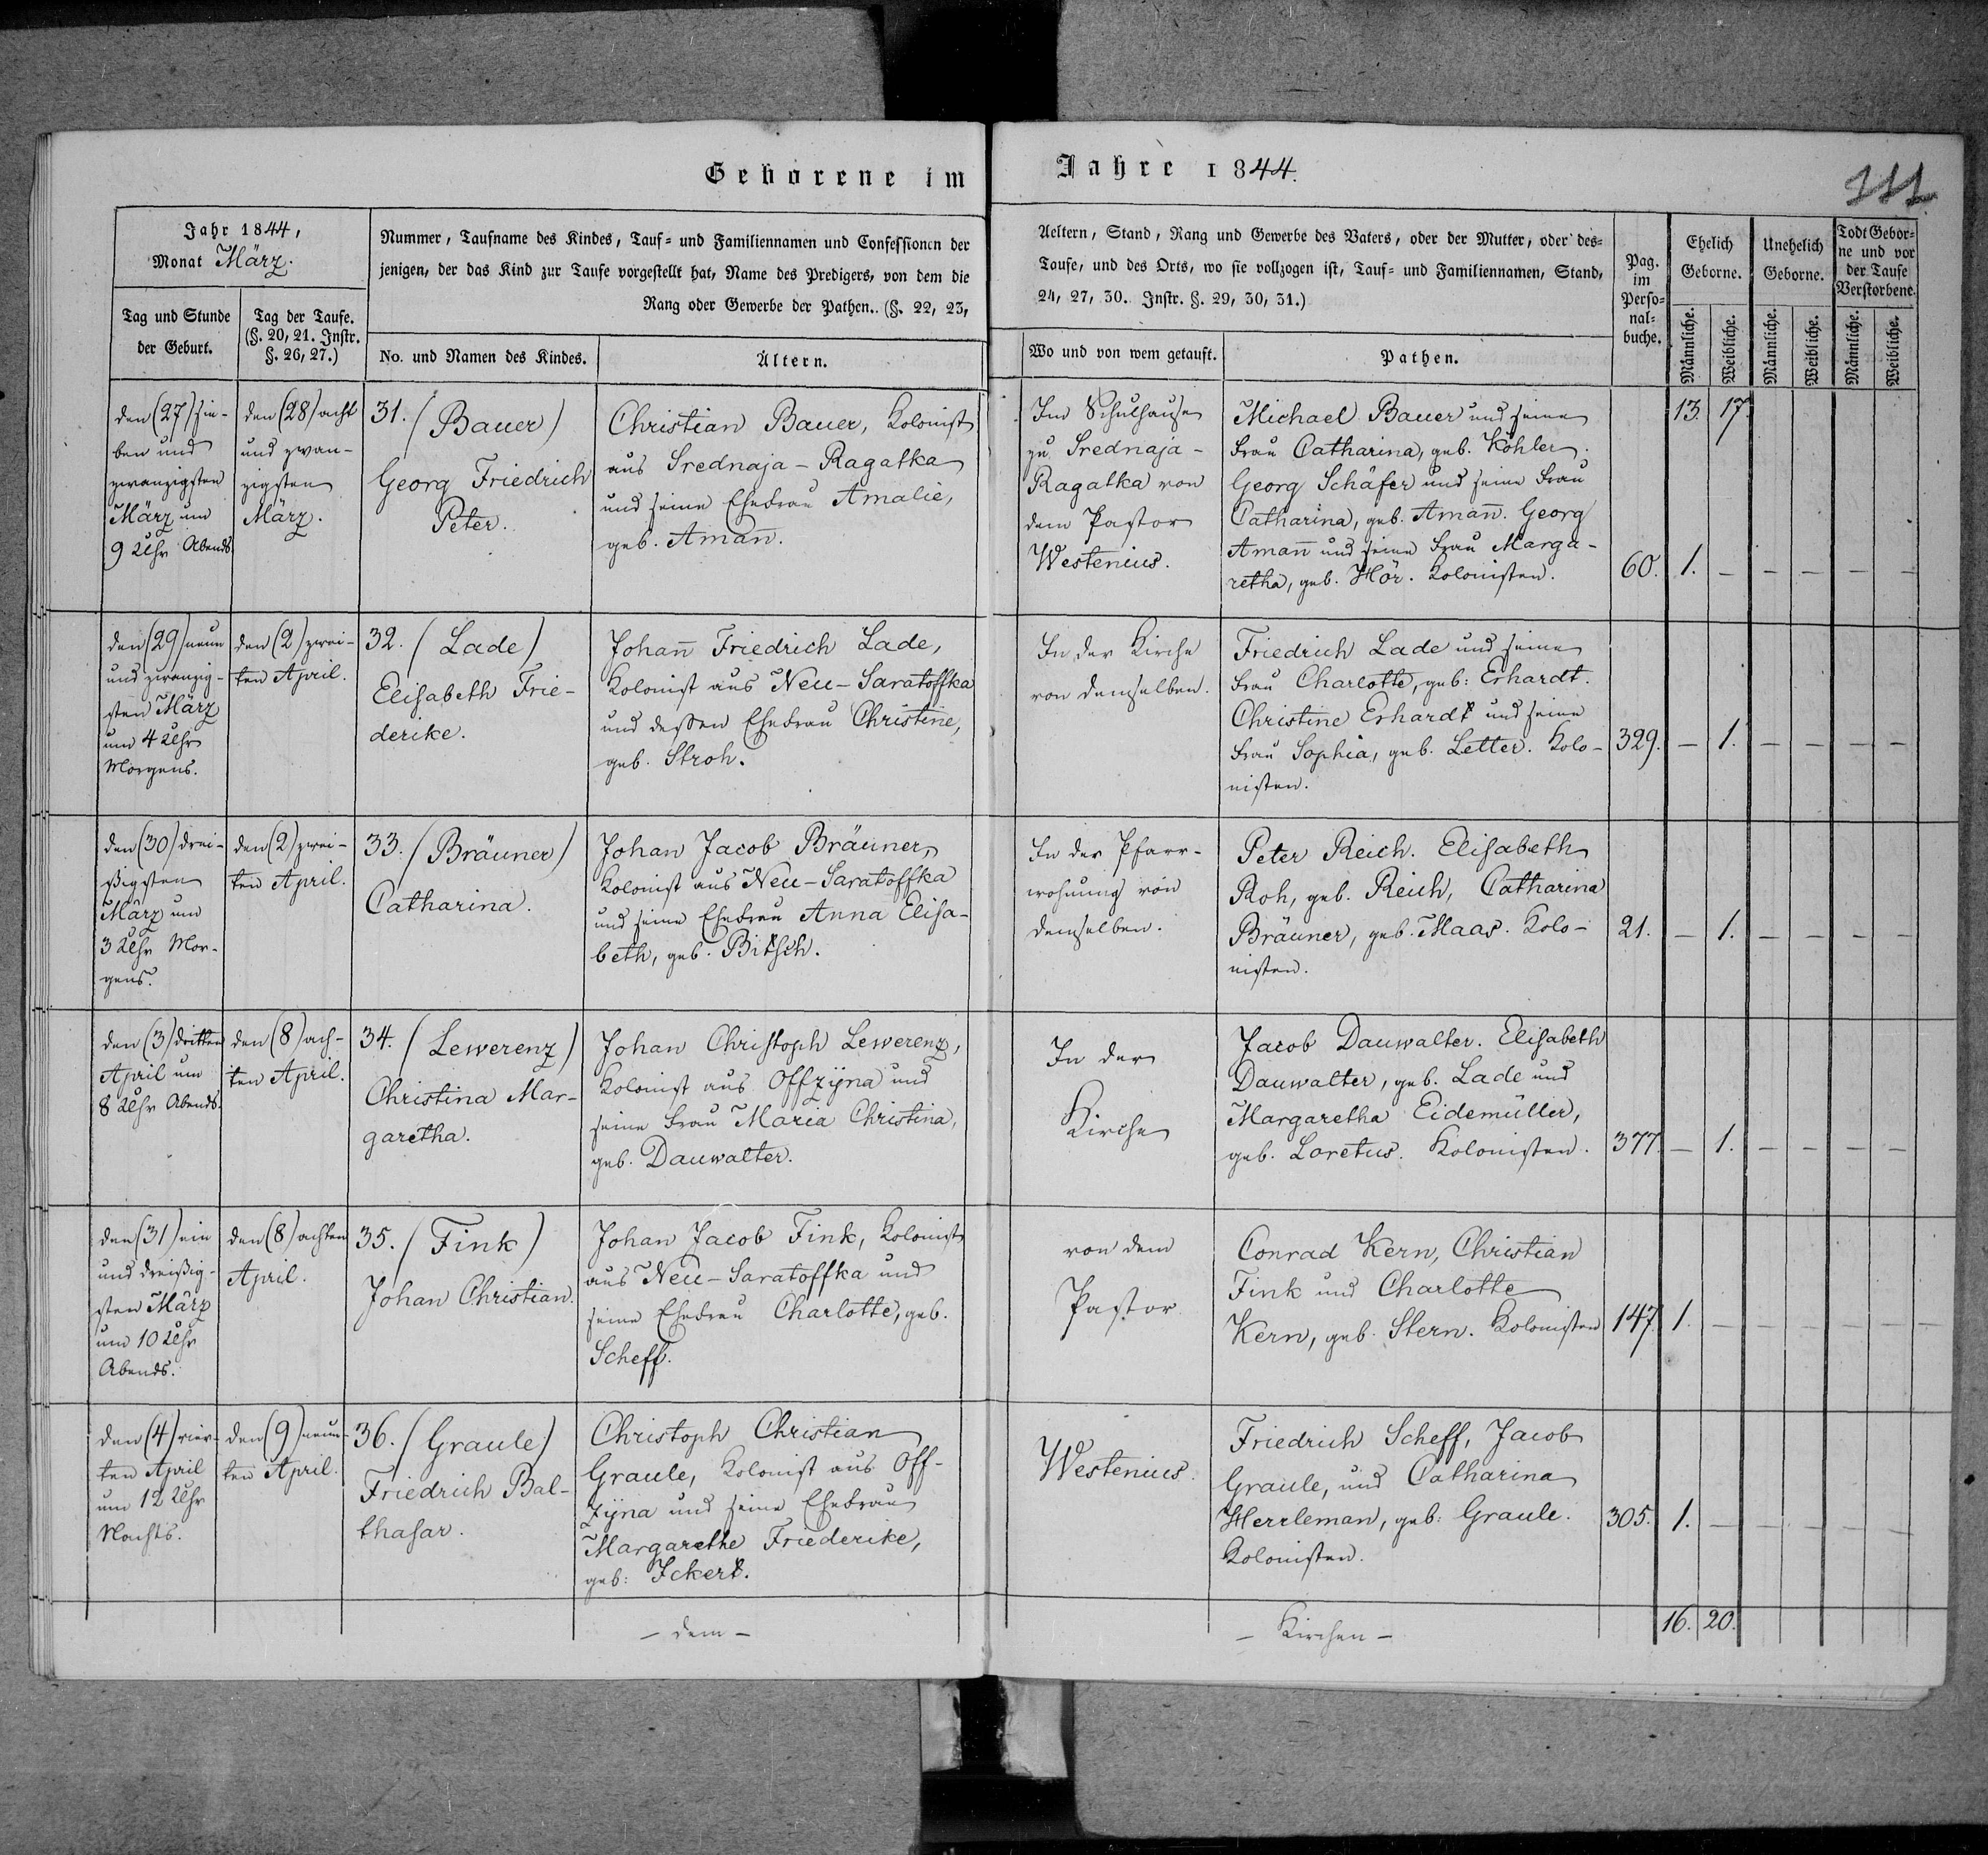 Geborene im Jahre 1844.
111
Jahr 1844,
Monat März.
Tag und Stunde
der Geburt.
Tag der Taufe.
(§. 20, 21. Instr.
§. 26, 27.)
Nummer, Taufname des Kindes, Tauf- und Familiennamen und Confessionen der
jenigen, der das Kind zur Taufe vorgestellt hat, Name des Predigers, von dem die
Rang oder Gewerbe der Pathen.. (§. 22, 23,
No. und Namen des Kindes.
Ältern.
Aeltern, Stand, Rang und Gewerbe des Vaters, oder der Mutter, oder des-
Taufe, und des Orts, wo sie vollzogen ist, Tauf- und Familiennamen, Stand,
24, 27, 30. Instr. §. 29, 30, 31.)
Wo und von wem getauft.
Pathen.
Pag.
im
Perso-
nal-
buche.
Ehelich
Geborne.
Unehelich
Geborne.
Todt Gebor-
ne und vor
der Taufe
Verstorbene.
Männliche.
Weibliche.
Männliche.
Weibliche.
Männliche.
Weibliche.
den (27) sie-
ben und
zwanzigsten
März um
9 Uhr Abends.
den (28) acht
und zwan-
zigsten
März.
31. (Bauer)
Georg Friedrich
Peter.
Christian Bauer, Kolonist
aus Srednaja-Ragatka
und seine Ehefrau Amalie,
geb. Aman̄.
Im Schulhause
zu Srednaja-
Ragatka von
dem Pastor
Westenius.
Michael Bauer und seine
Frau Catharina, geb. Köhler.
Georg Schäfer und seine Frau
Catharina, geb. Aman̄. Georg
Aman̄ und seine Frau Marga-
retha, geb. Hör. Kolonisten.
13. 17.
60. 1. – – – – –
den (29) neun
und zwanzig-
sten März
um 4 Uhr
Morgens.
den (2) zwei-
ten April.
32. (Lade)
Elisabeth Frie-
derike.
Johan̄ Friedrich Lade,
Kolonist aus Neu-Saratoffka
und dessen Ehefrau Christine,
geb. Stroh.
In der Kirche
von demselben.
Friedrich Lade und seine
Frau Charlotte, geb: Erhardt.
Christine Erhardt und seine
Frau Sophia, geb. Letter. Kolo-
nisten.
329. – 1. – – – –
den (30) drei-
ßigsten
März um
3 Uhr Mor-
gens.
den (2) zwei-
ten April.
33. (Bräuner)
Catharina.
Johan Jacob Bräuner,
Kolonist aus Neu-Saratoffka
und seine Ehefrau Anna Elisa-
beth, geb. Bitsch.
In der Pfarr-
wohnung von
demselben.
Peter Reich. Elisabeth
Roh, geb. Reich, Catharina
Bräuner, geb. Maas. Kolo-
nisten.
21. – 1. – – – –
den (3) dritten
April um
8 Uhr Abends.
den (8) ach-
ten April.
34. (Lewerenz)
Christina Mar-
garetha.
Johan Christoph Lewerenz,
Kolonist aus Offzÿna und
seine Frau Maria Christina,
geb. Dauwalter.
In der
Kirche
Jacob Dauwalter. Elisabeth
Dauwalter, geb. Lade und
Margaretha Eidemüller,
geb. Loretus. Kolonisten.
377. – 1. – – – –
den (31) ein
und dreißig-
sten März
um 10 Uhr
Abends.
den (8) achten
April.
35. (Fink)
Johan Christian.
Johan Jacob Fink, Kolonist
aus Neu-Saratoffka und
seine Ehefrau Charlotte, geb.
Scheff.
von dem
Pastor
Conrad Kern, Christian
Fink und Charlotte
Kern, geb. Stern. Kolonisten
147. 1. – – – – –
den (4) vier-
ten April
um 12 Uhr
Nachts.
den (9) neun-
ten April.
36. (Graule)
Friedrich Bal-
thasar.
Christoph Christian
Graule, Kolonist aus Off-
zÿna und seine Ehefrau
Margarethe Friederike,
geb: Ickert.
Westenius.
Friedrich Scheff, Jacob
Graule, und Catharina
Herrleman, geb: Graule.
Kolonisten.
305. 1. – – – – –
16. 20.
– dem –
– Kirchen –